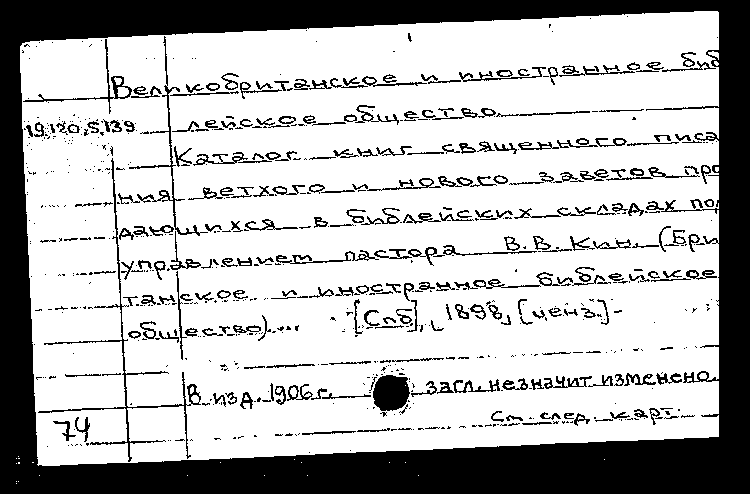 Великобританское и иностранное биб
19.120,5.139 лейское общество
Каталог книг священного писа
ния ветхого и нового заветов про
дающихся в библейских складах под
управлением пастора В.В. Кин. (Бри
танское и иностранное библейское
общество).... [Спб], 1898, [ценз.]-
В изд. 1906 г. загл. незначит изменено.
74 См. след. карт.